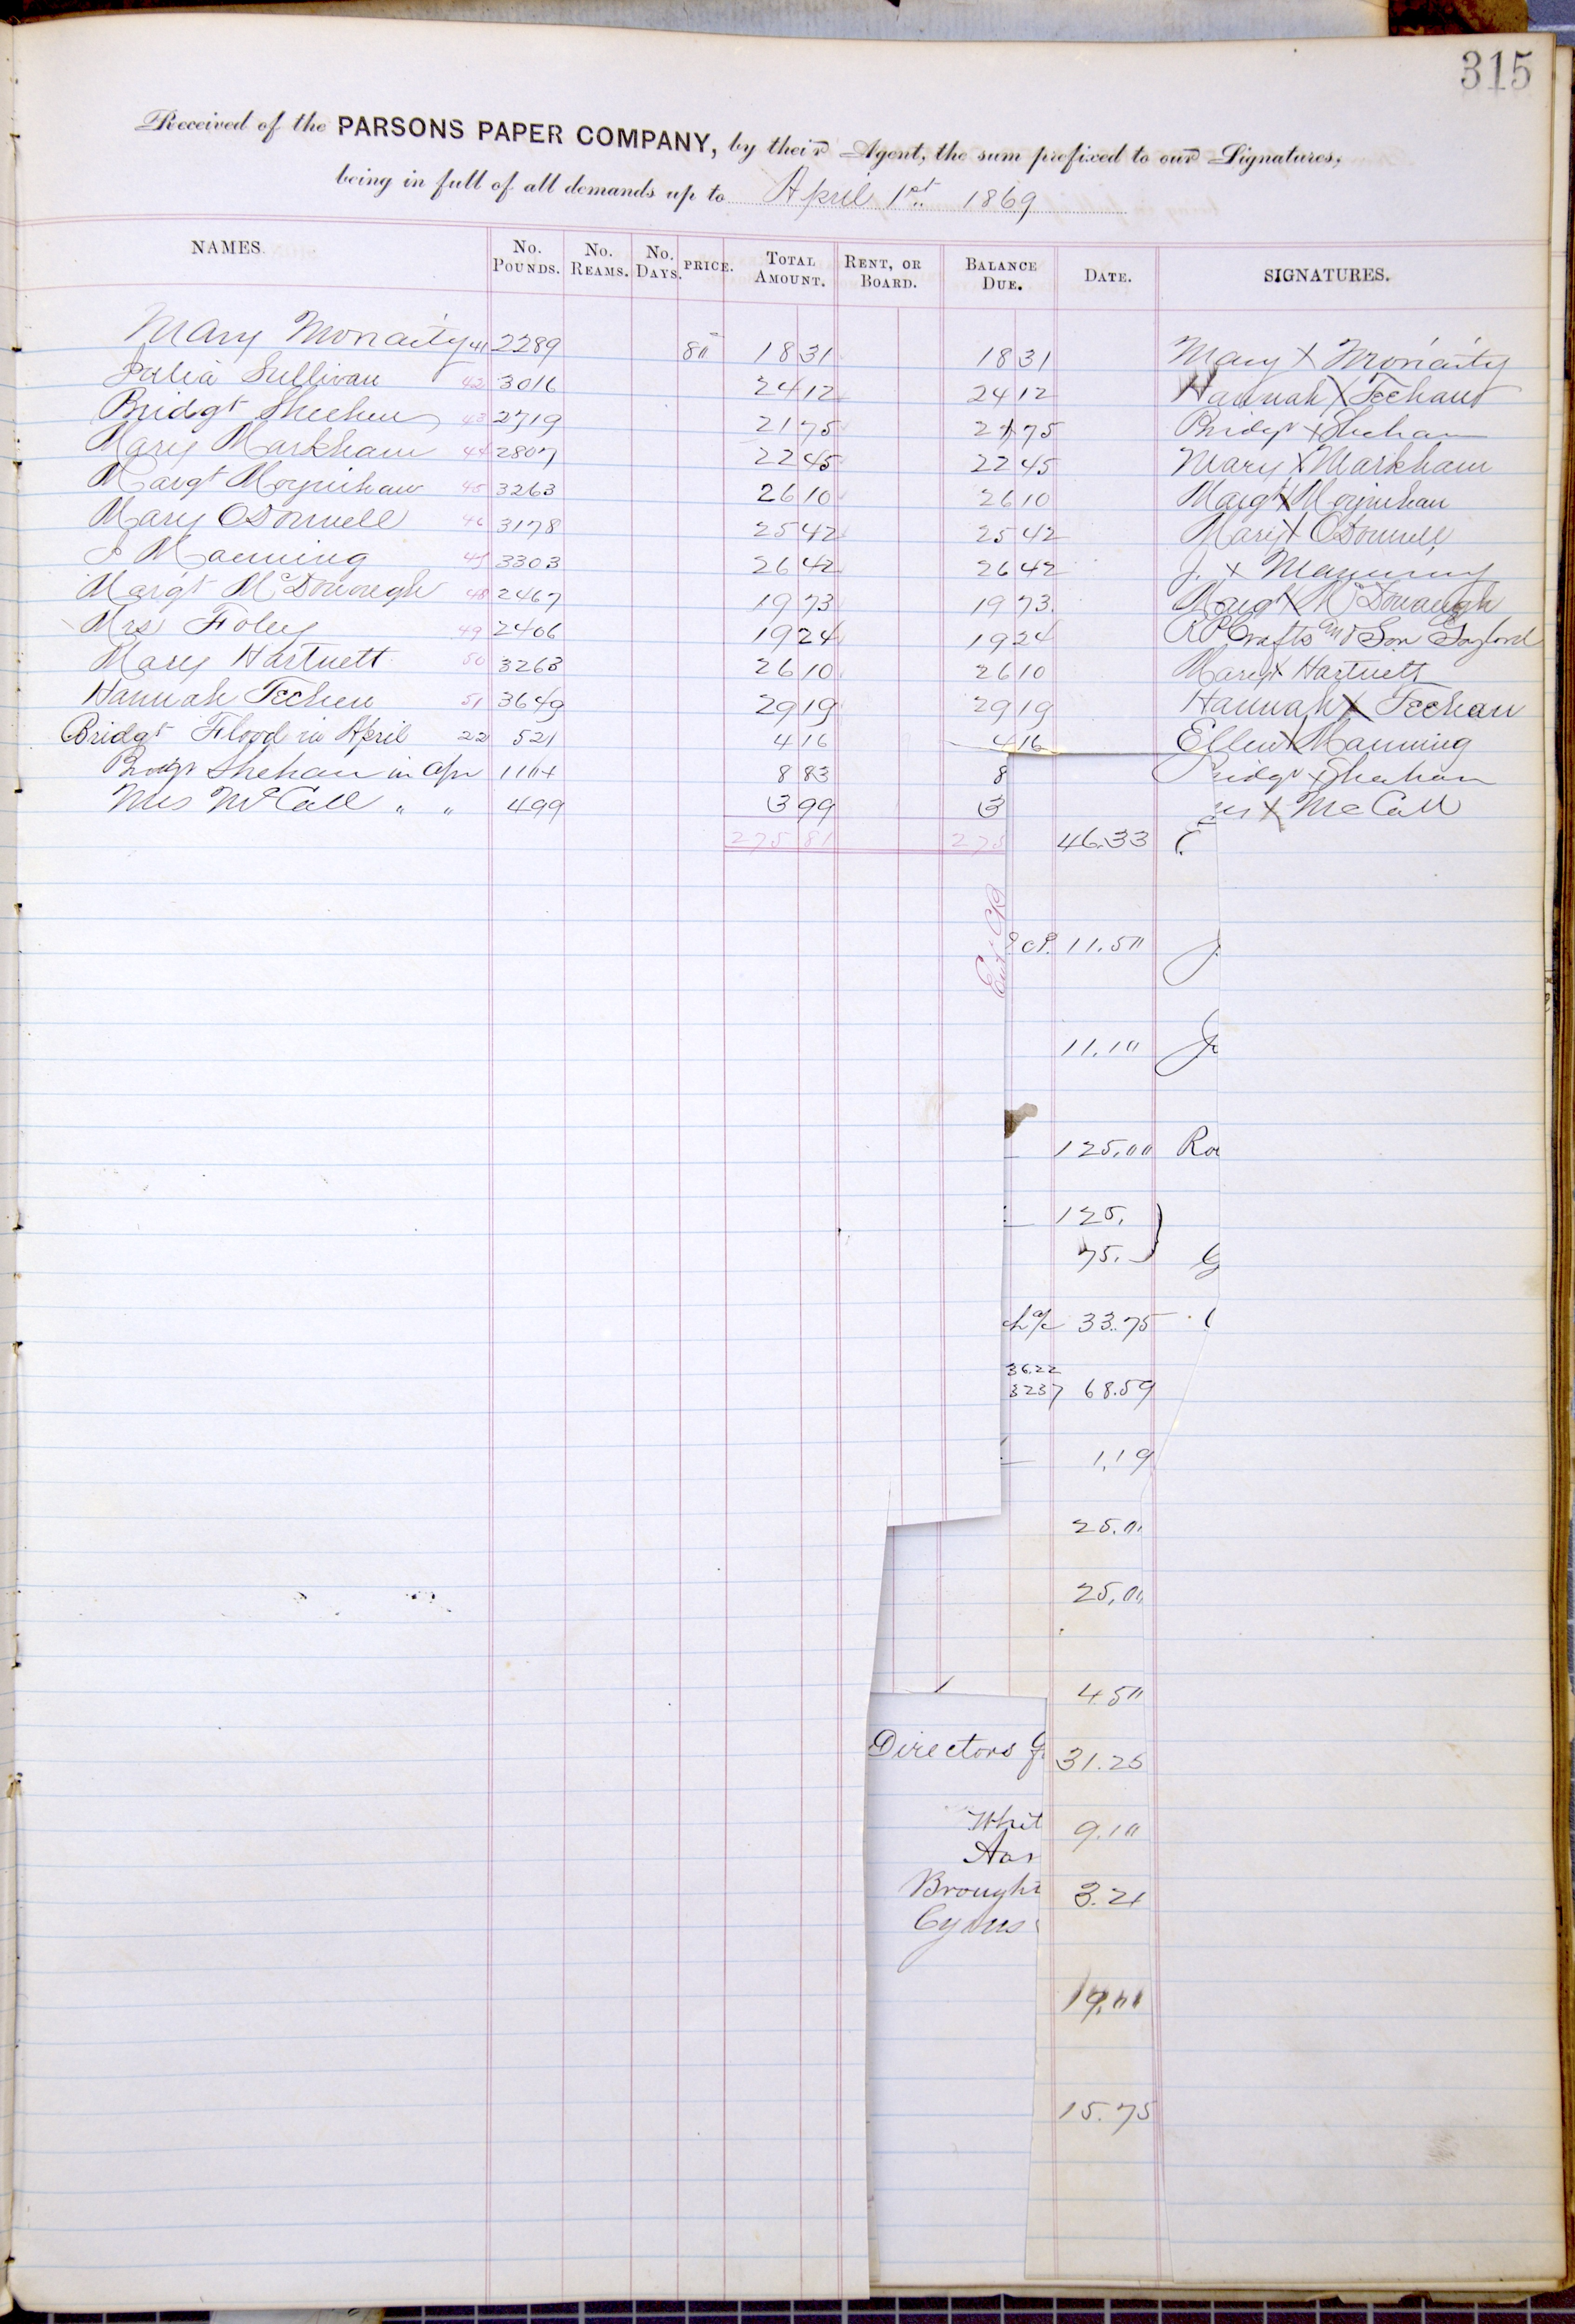 315
Received of the PARSONS PAPER COMPANY, by their Agent, the sum prefixed to our Signatures,
being in full of all demands up to April 1st. 1869
NAMES. No. POUNDS. No. REAMS. No. DAYS. PRICE. TOTAL AMOUNT. RENT, OR BOARD. BALANCE DUE. DATE. SIGNATURES.
Mary Moriaity 41 2289 8" 18 31 18 31 Mary X Moriaity
Julia Sullivan 42 3016 24 12 24 12 Hannah X Feehan
Bridgt Sheehan 43 2719 21 75 21 75 Bridgt X Shehan
Mary Markham 44 2807 22 45 22 45 Mary X Markham
Margt Moynihan 45 3263 26 10 26 10 Margt X Moynihan
Mary ODonnell 46 3178 25 42 25 42 Mary X ODonnell
J Manning 47 3303 26 42 26 42 J. X Manning
Margt McDonough 48 2467 19 73 19 73 Margt X McDonaugh
Mrs Foley 49 2406 19 24 19 24 RP Crafts and Son Gaylord
Mary Hartnett 50 3263 26 10 26 10 Mary X Hartnett
Hannah Feehen 51 3649 29 19 29 19 Hannah X Feehan
Bridgt Flood in April 22 521 4 16 4 16 Ellen X Manning
Bridgt Shehan in Apr 1104 8 83 8 ridgt X Shehan
Mrs McCall " " 499 3 99 3 rs X McCall
275 81 275 46.33
11.50
11.10
125.00 Ro
125.
75.
33.75
36.22
3237 68.59
1.19
25.0
25.00
4.50
Directors 31.25
Whit 9.10
Aar
Brought 3.21
Cyrus
19.00
15.75